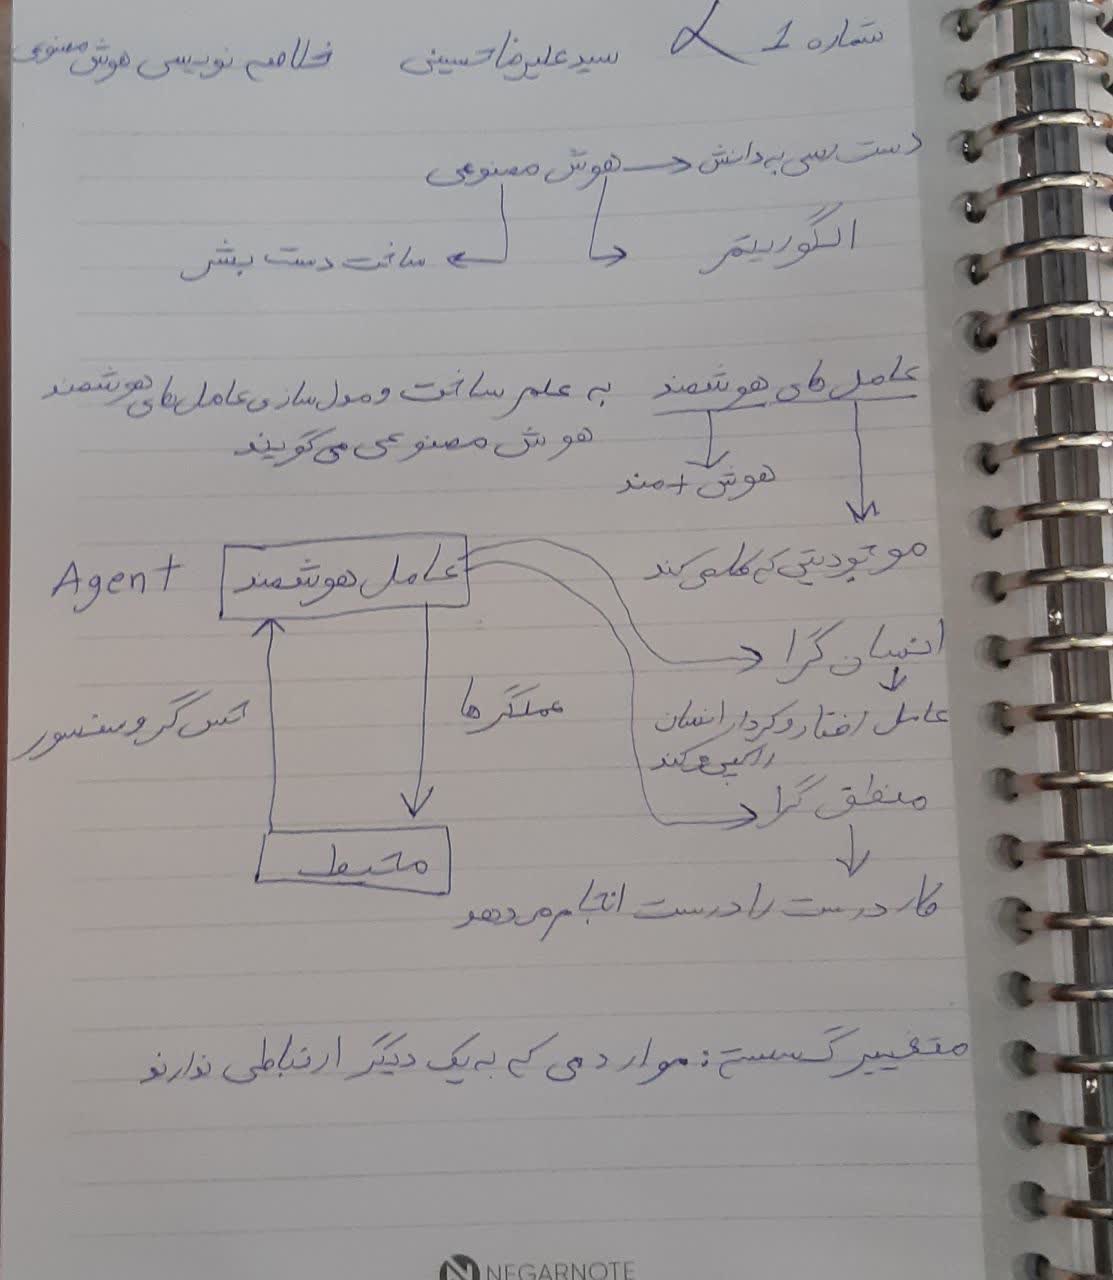 شماره 1
سید علیرضا حسینی
خلاصه نویسی هوش مصنوعی
دست رسی به دانش
هوش مصنوعی
الگوریتم
ساخت دست بشر
عامل های هوشمند
به علم ساخت و مدل سازی عامل های هوشمند
هوش مصنوعی می گویند
هوش + مند
موجودیتی که کار می کند
Agent
عامل هوشمند
انسان گرا
عامل رفتار و کردار انسان
را کپی می کند
عملگرها
حس گر و سنسور
منطق گرا
محیط
کار درست را درست انجام می دهد
متغییر گسسته: مواردی که به یک دیگر ارتباطی ندارند
NEGARNOTE